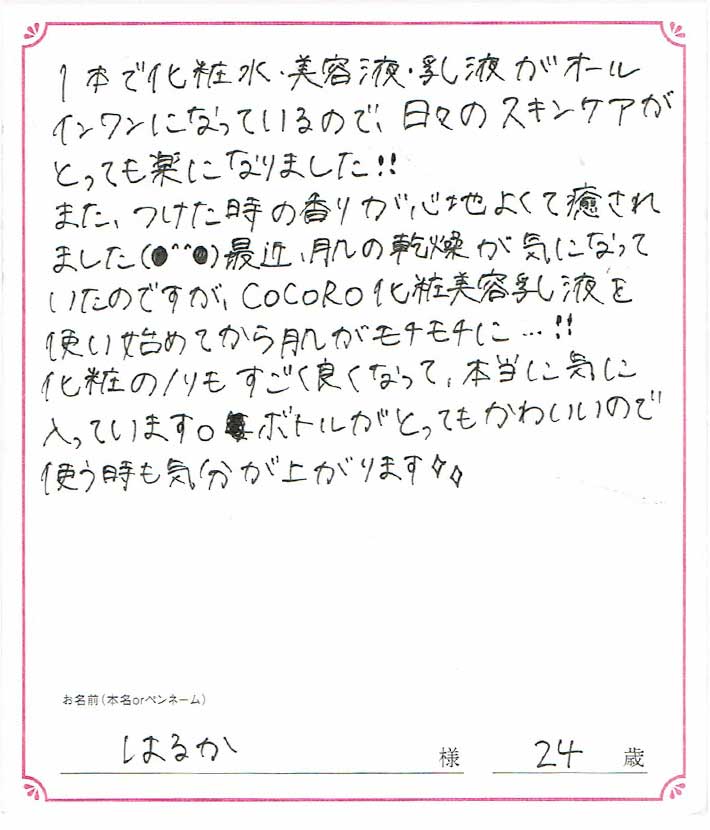 1本で化粧水・美容液・乳液がオール
インワンになっているので、日々のスキンケアが
とっても楽になりました!!
また、つけた時の香りが心地よくて癒され
ました(●^^●)最近、肌の乾燥が気になって
いたのですが、COCORO化粧美容乳液を
使い始めてから肌がモチモチに…!!
化粧のノリもすごく良くなって、本当に気に
入っています。ボトルがとってもかわいいので
使う時も気分が上がります✧⬨
お名前(本名orペンネーム)
はるか 様 24 歳